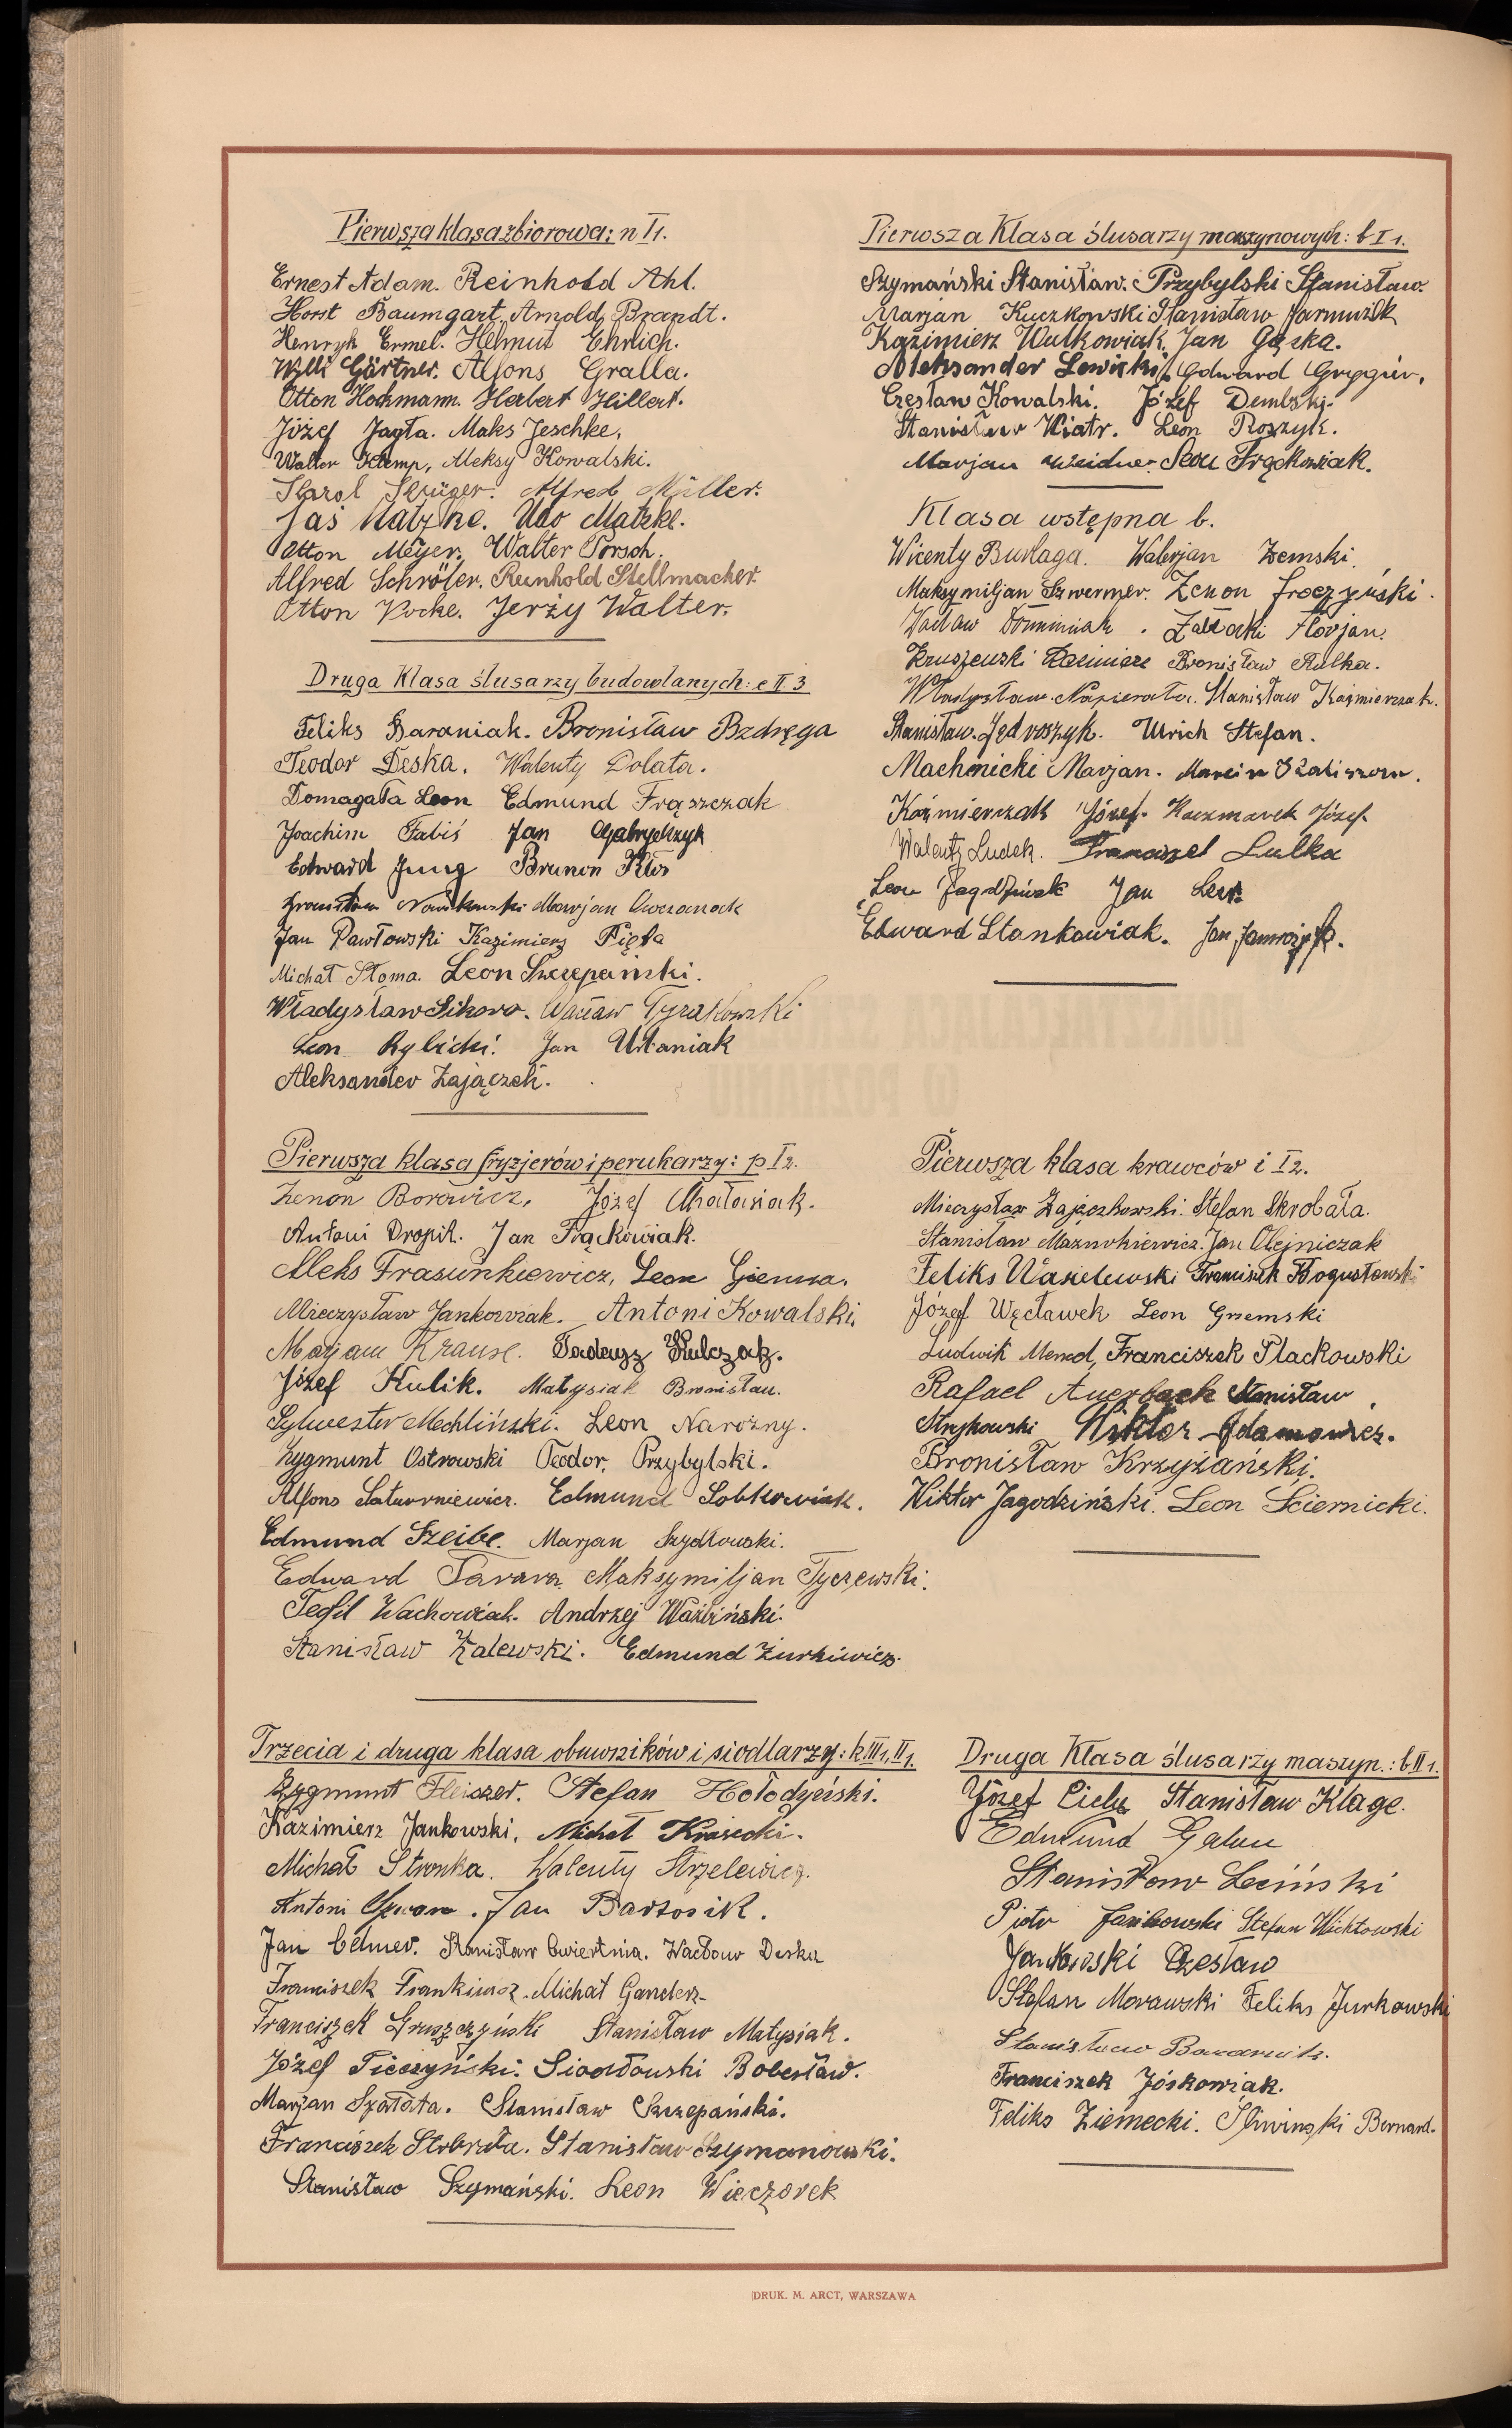 Pierwsza klasa zbiorowa: n I1.
Ernest Adam. Reinhold Ahl.
Horst Baumgart, Arnold Brandt.
Henryk Ermel. Helmut Ehrlich.
Willi Gärtner. Alfons Gralla.
Otton Hochmann. Herbert Hillert.
Józef Jagła. Maks Jeschke.
Walter Klemp, Aleksy Kowalski.
Karol Krüger. Alfred Müller.
Jaś Matzke. Udo Matzke.
Otton Meyer. Walter Porsch.
Alfred Schröter. Reinhold Stellmacher.
Otton Vocke. Jerzy Walter.
Druga Klasa ślusarzy budowlanych: e II 3
Feliks Baraniak. Bronisław Bzdręga
Teodor Deska. Walenty Dolata.
Domagała Leon Edmund Frąszczak
Joachim Fabiś Jan Gabryelczyk
Edward Jung Brunon Kłos
Bronisław Nowakowski Marjan Owczarzak
Jan Pawłowski Kazimierz Pięta
Michał Słoma. Leon Szczepański.
Władysław Sikora. Wacław Tyrakowski
Leon Rybicki. Jan Urbaniak
Aleksander Zajączek.
Pierwsza klasa fryzjerów i perukarzy: p I2.
Zenon Borowicz, Józef Chałasiak.
Antoni Dropik. Jan Frąckowiak.
Aleks Frasunkiewicz, Leon Gienna.
Mieczysław Jankowiak. Antoni Kowalski,
Marjan Krause. Tadeusz Kulczak.
Józef Kulik. Matysiak Bronisław.
Sylwester Mechliński. Leon Narożny.
Zygmunt Ostrowski Teodor Przybylski.
Alfons Saturniewicz. Edmund Sobkowiak.
Edmund Szeibe. Marjan Szydłowski.
Edward Tarara Maksymiljan Tyczewski.
Teofil Wachowiak. Andrzej Waźbiński.
Stanisław Zalewski. Edmund Żurkiewicz.
Trzecia i druga klasa obuwników i siodlarzy: k III1, II1.
Zygmunt Fleiszer. Stefan Hołodyński.
Kazimierz Jankowski, Michał Krasecki.
Michał Stronka. Walenty Strzelewicz.
Antoni . Jan Bartosik.
Jan Celmer. Stanisław Ćwiertnia. Wacław Deska
Franciszek Frankiewicz. Michał Ganderz
Franciszek Gruszczyński Stanisław Matysiak.
Józef Pieczyński. Siodłowski Bolesław.
Marjan Szałata. Stanisław Szczepański.
Franciszek Skobrata. Stanisław Szymanowski.
Stanisław Szymański. Leon Wieczorek
Pierwsza Klasa ślusarzy maszynowych: b I 1.
Szymański Stanisław. Przybylski Stanisław.
Marjan Kuczkowski Stanisław Jarmużek
Kazimierz Walkowiak. Jan Gąska.
Aleksander Lewicki Edward Grygier.
Czesław Kowalski. Józef Dembski.
Stanisław Wiatr. Leon Roszyk.
Marjan Weidner. Leon Frąckowiak.
Klasa wstępna b.
Wicenty Burlaga. Walerjan Zemski.
Maksymiljan Szwermer. Zenon Troczyński.
Wacław Dominiak. Załacki Florjan.
Kruszewski Kazimierz Bronisław Rulka.
Władysław Napierała. Stanisław Kaźmierczak.
Stanisław Jędroszyk. Ulrich Stefan.
Machnicki Marjan. Marcin Kaliszan.
Kaźmierczak Józef. Kaczmarek Józef.
Walenty Ludek. Franciszek Lulka
Leon Jagodziński Jan Lew.
Edward Stankowiak. Jan Jamrozik.
Pierwsza klasa krawców i I2.
Mieczysław Zajączkowski. Stefan Skrobała.
Stanisław Mazurkiewicz. Jan Olejniczak
Feliks Wasielewski Franciszek Bogusławski
Józef Węcławek Leon Grzemski
Ludwik Mened, Franciszek Plackowski
Rafael Auerbach Stanisław
Strykowski Wiktor Adamowicz.
Bronisław Krzyżański.
Wiktor Jagodziński. Leon Sciernicki.
Druga Klasa ślusarzy maszyn.: b II1.
Józef Cichy Stanisław Klage.
Edmund Galun
Stanisław Leciński
Piotr Jasikowski Stefan Wichtowski
Jankowski Czesław
Stefan Morawski Feliks Jurkowski
Stanisław
Franciszek Jóskowiak.
Feliks Ziemecki. Śliwinski Bernard.
DRUK. M. ARCT, WARSZAWA